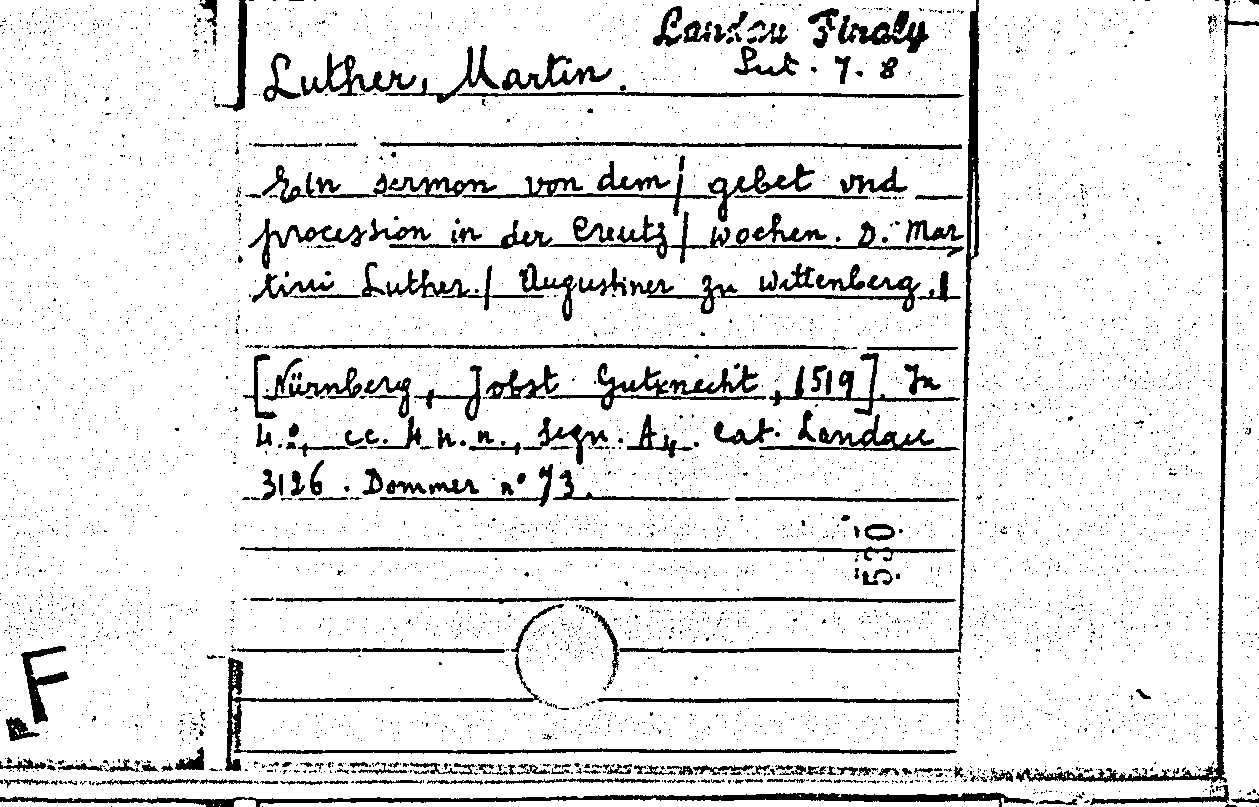 Landau Finaly
Lut. 7. 8
Luther, Martin.
Ein sermon von dem/ gebet vnd
procession in der Creutz/ wochen. D. Mar
tini Luther./ Augustiner zu wittenberg./
[Nürnberg, Jobst Gutknecht, 1519]. In
4.°, cc. 4 n.n., segn. A4. Cat. Landau
3126. Dommer n° 73.
530
F